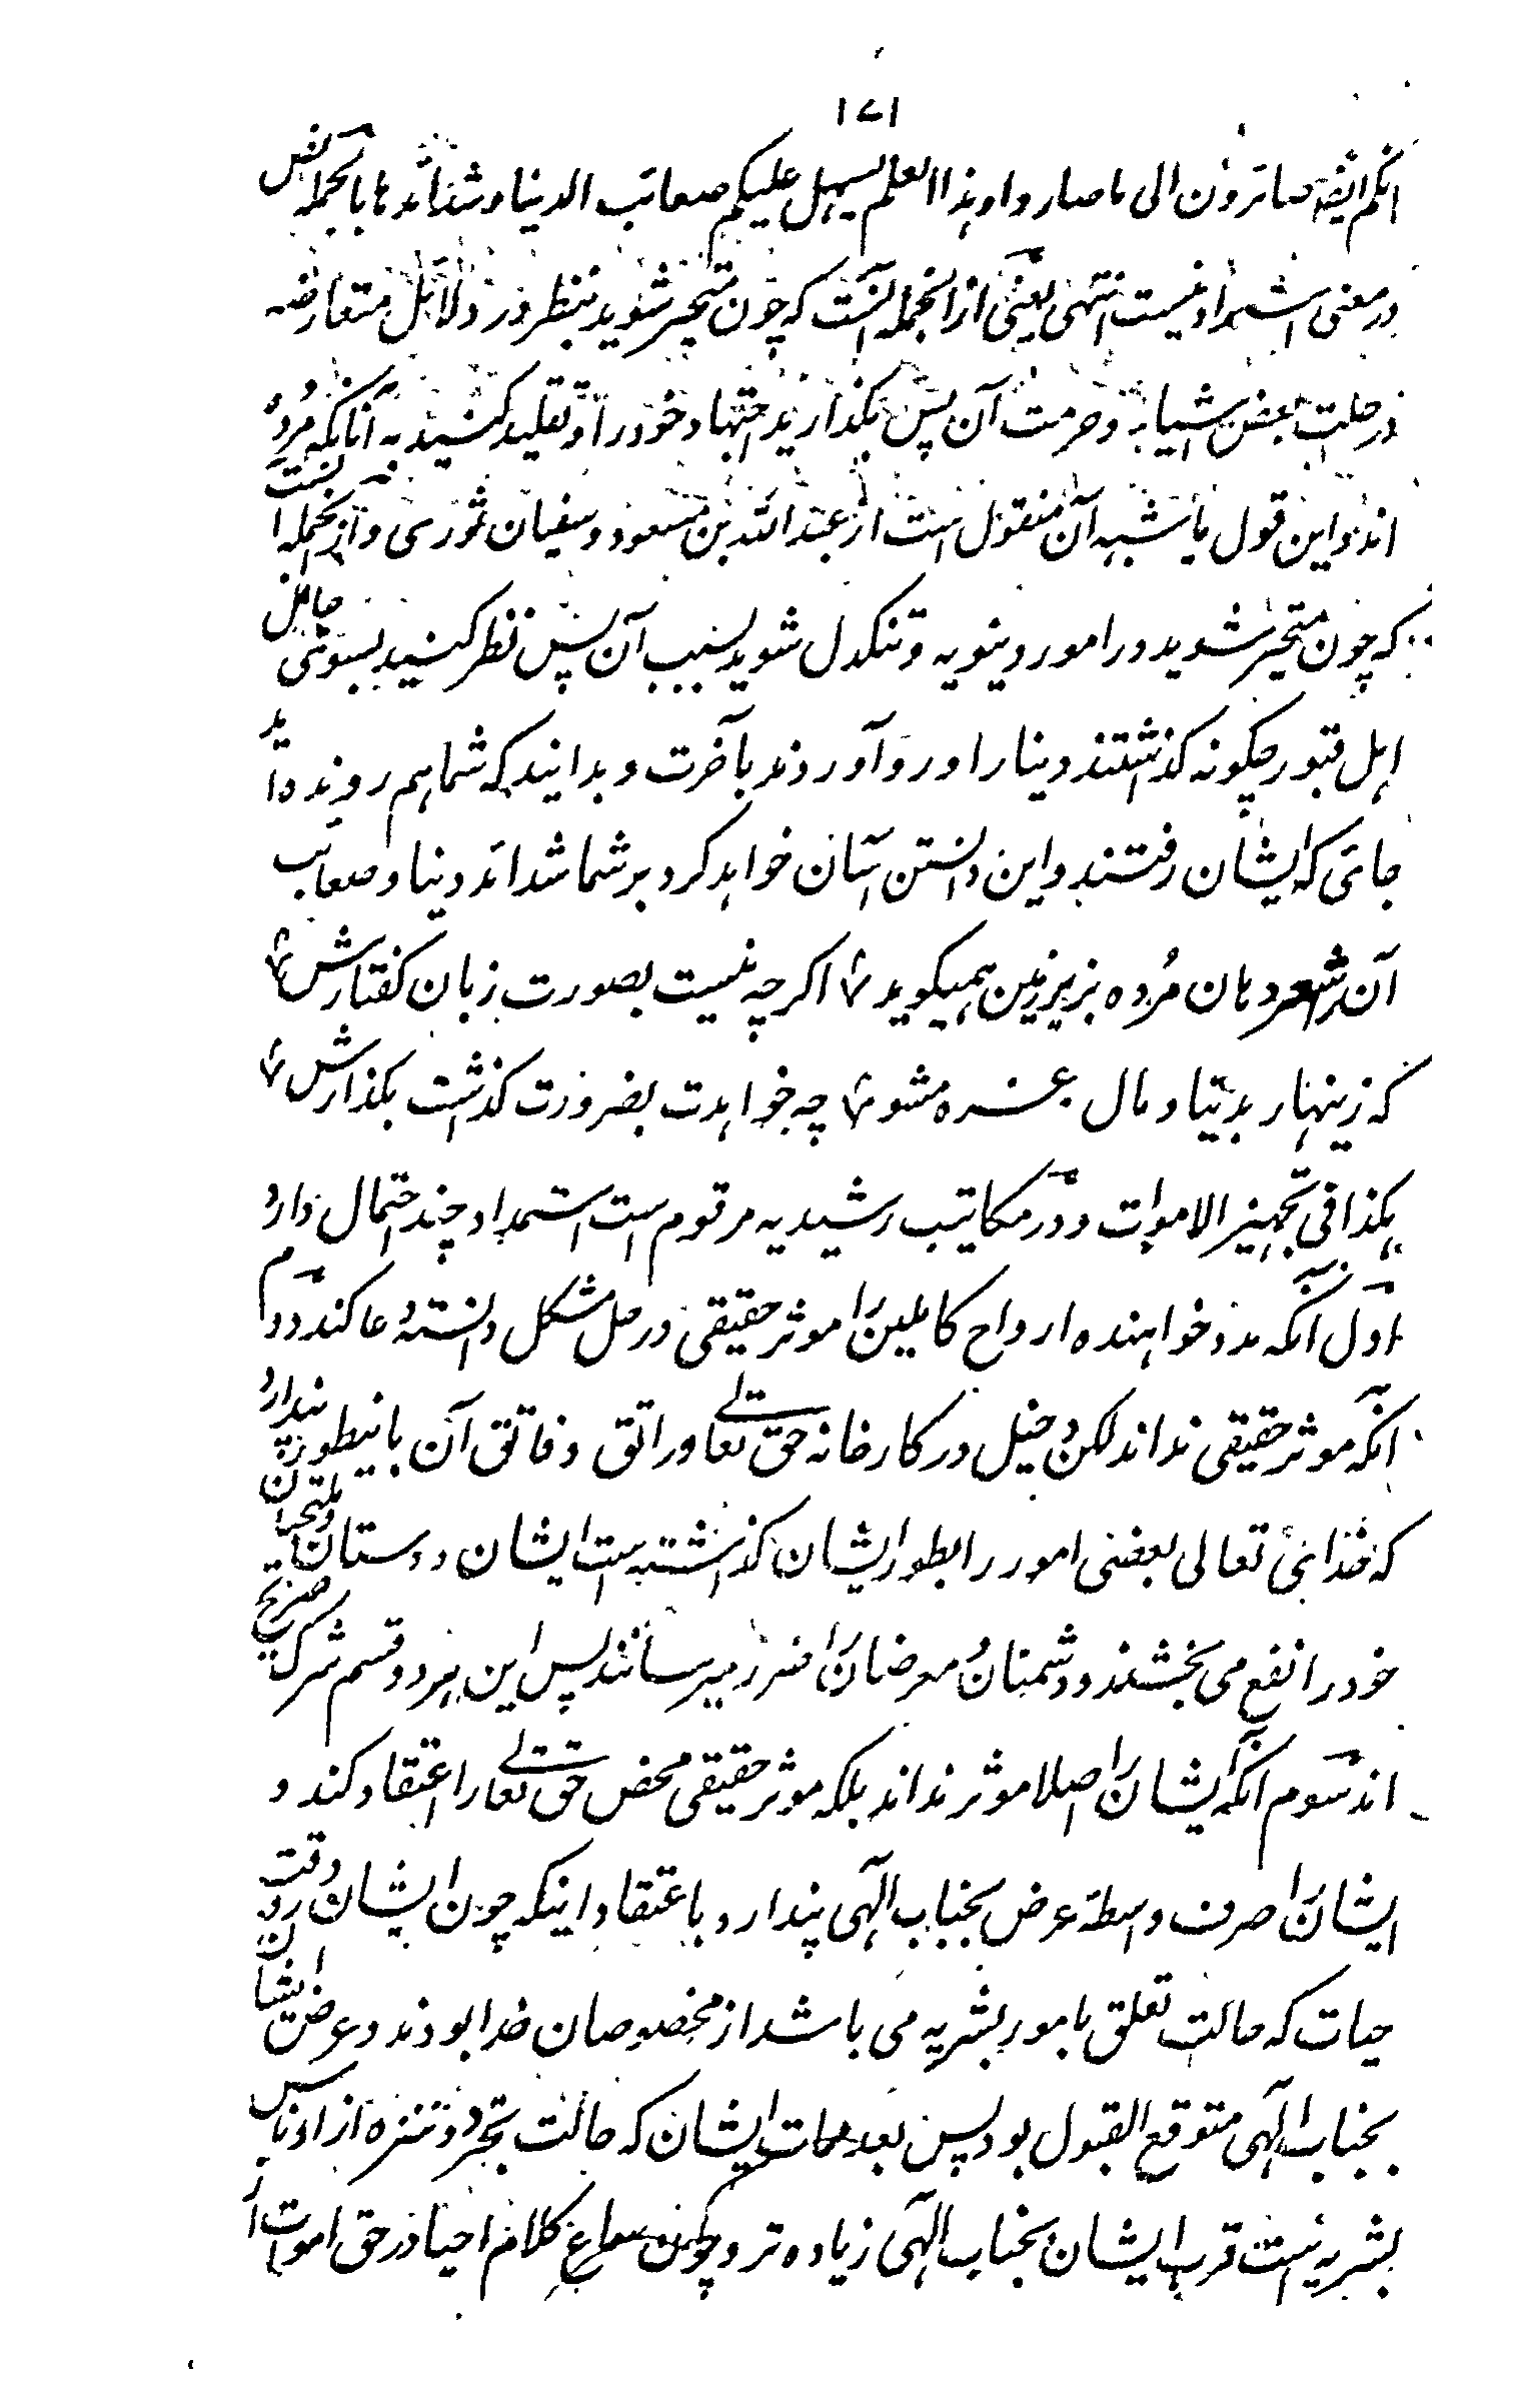 ۱۷۱
انکم ایضا صائرون الی ما صاروا و هذا العلم یسهل علیکم صعائب الدنیا و شدائدها بالجمله نص
در معنی استمداد نیست انتهی یعنی از انجمله آنست که چون متحیر شوید بنظر در دلائل متعارضه
در حلت بعض اشیا و حرمت آن پس بکذارید اجتهاد خود را و تقلید کنید به آنانکه مرده
اند و این قول یا شبیه آن منقول است از عبد الله بن مسعود و سفیان ثوری و از انجمله آنست
که چون متحیر شوید در امور دنیویه و تنکدل شوید بسبب آن پس نظر کنید بسوی حال
اهل قبور چکونه کذشتند دنیا را و رو آوردند بآخرت و بدانید که شما هم رونده اید
جائی که ایشان رفتند و این دانستن آسان خواهد کرد بر شما شدائد دنیا و صعائب
آن شعر دهان مرده بزیر زمین همیکوید ؎ اکرچه نیست بصورت زبان کفتارش ؎
که زینهار بدنیا و مال غره مشو ؎ چه خواهدت بضرورت کذشت بکذارش ؎
هکذا فی تجهیز الاموات و در مکاتیب رشیدیه مرقوم است استمداد چند احتمال دارد
اول آنکه مدد خواهنده ارواح کاملین را موثر حقیقی در حل مشکل دانسته دعا کند دوم
آنکه موثر حقیقی نداند لکن دخیل در کارخانه حق تعالے و راتق و فاتق آن باینطور پندارد
که خدای تعالی بعضی امور را بطور ایشان کذاشته است ایشان دوستان و ملتجیان
خود را نفع می بخشند و دشمنان و معرضان را ضرر میرسانند پس این هر دو قسم شرک صریح
اند سوم آنکه ایشان را اصلا موثر نداند بلکه موثر حقیقی محض حق تعالے را اعتقاد کند و
ایشان را صرف واسطه عرض بجناب الهی پندارد باعتقاد اینکه چون ایشان در وقت
حیات که حالت تعلق بامور بشریه می باشد از مخصوصان خدا بودند و عرض ایشان
بجناب الهی متوقع القبول بود پس بعد ممات ایشان که حالت تجرد و تنزه از ادناس
بشریه است قرب ایشان بجناب الهی زیاده تر و چون سماع کلام احیا در حق اموات از